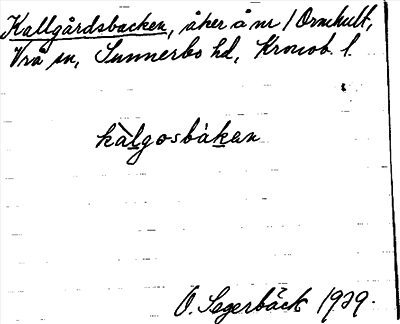 Kallgårdsbacken, åker å nr 1 Ormkult,
Vrå sn, Sunnerbo hd, Kronob. l.
kàlgosbàkan
O. Segerbäck 1929.